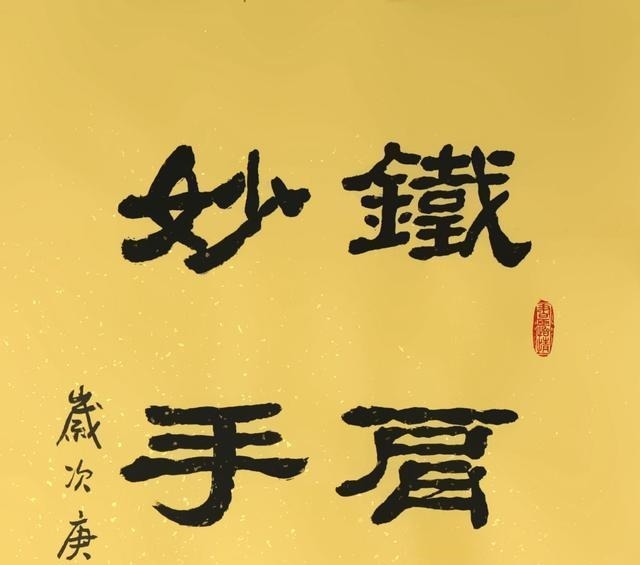 鐵肩
妙手
歲次庚